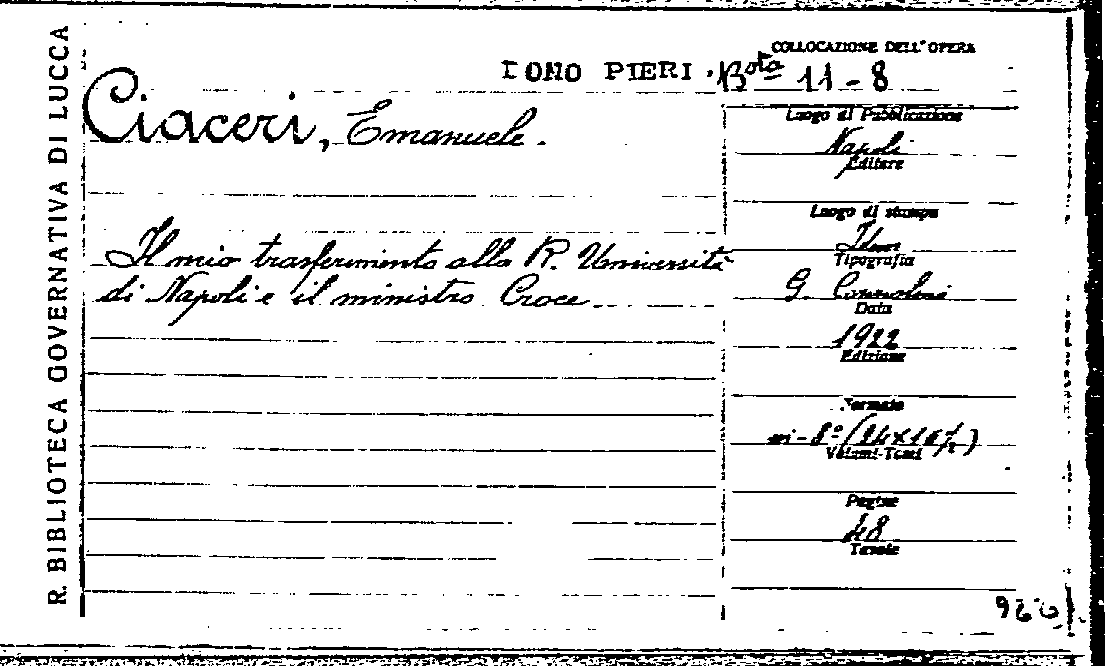 R. BIBLIOTECA GOVERNATIVA DI LUCCA
COLLOCAZIONE DELL'OPERA
DONO PIERI. Bta 11-8
Ciaceri, Emanuele.
Il mio trasferimento alla R. Università
di Napoli e il ministro Croce
Luogo di Pubblicazione
Napoli
Editore
Luogo di stampa
Idem
Tipografia
G.
Data
1922
Edizione
Formato
in-8º
Volumi-Tomi
Pagine
48
Tavole